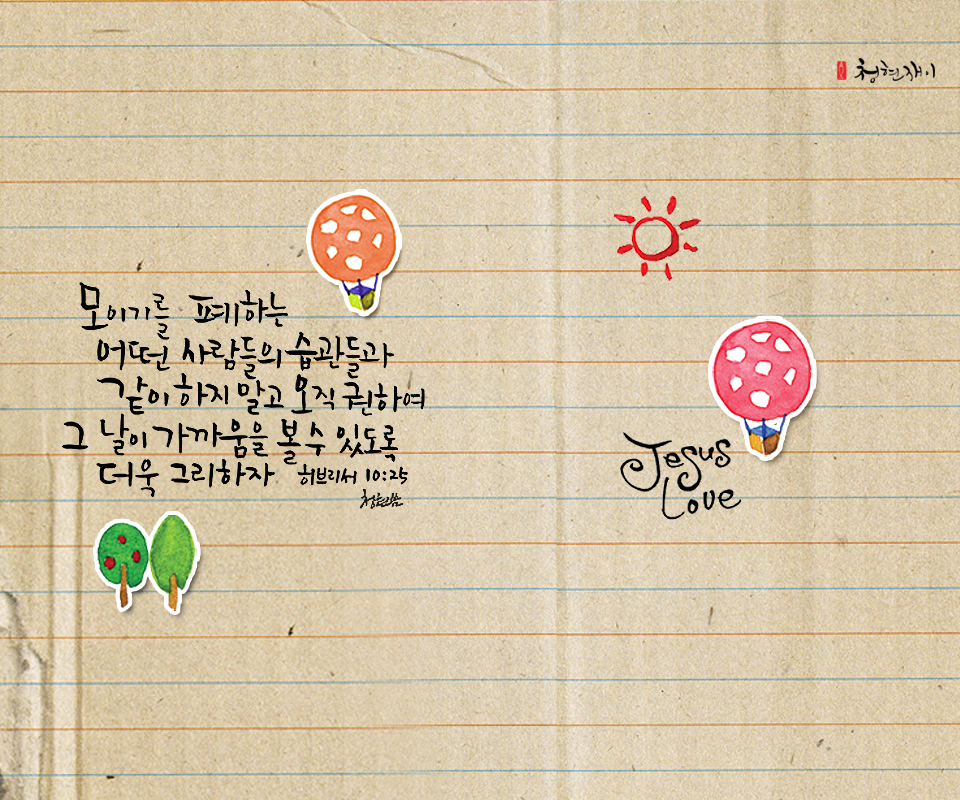 청현재이
모이기를 폐하는
어떤 사람들의 습관들과
같이 하지 말고 오직 권하여
그 날이 가까움을 볼 수 있도록
더욱 그리하자 히브리서 10:25
Jesus
Love